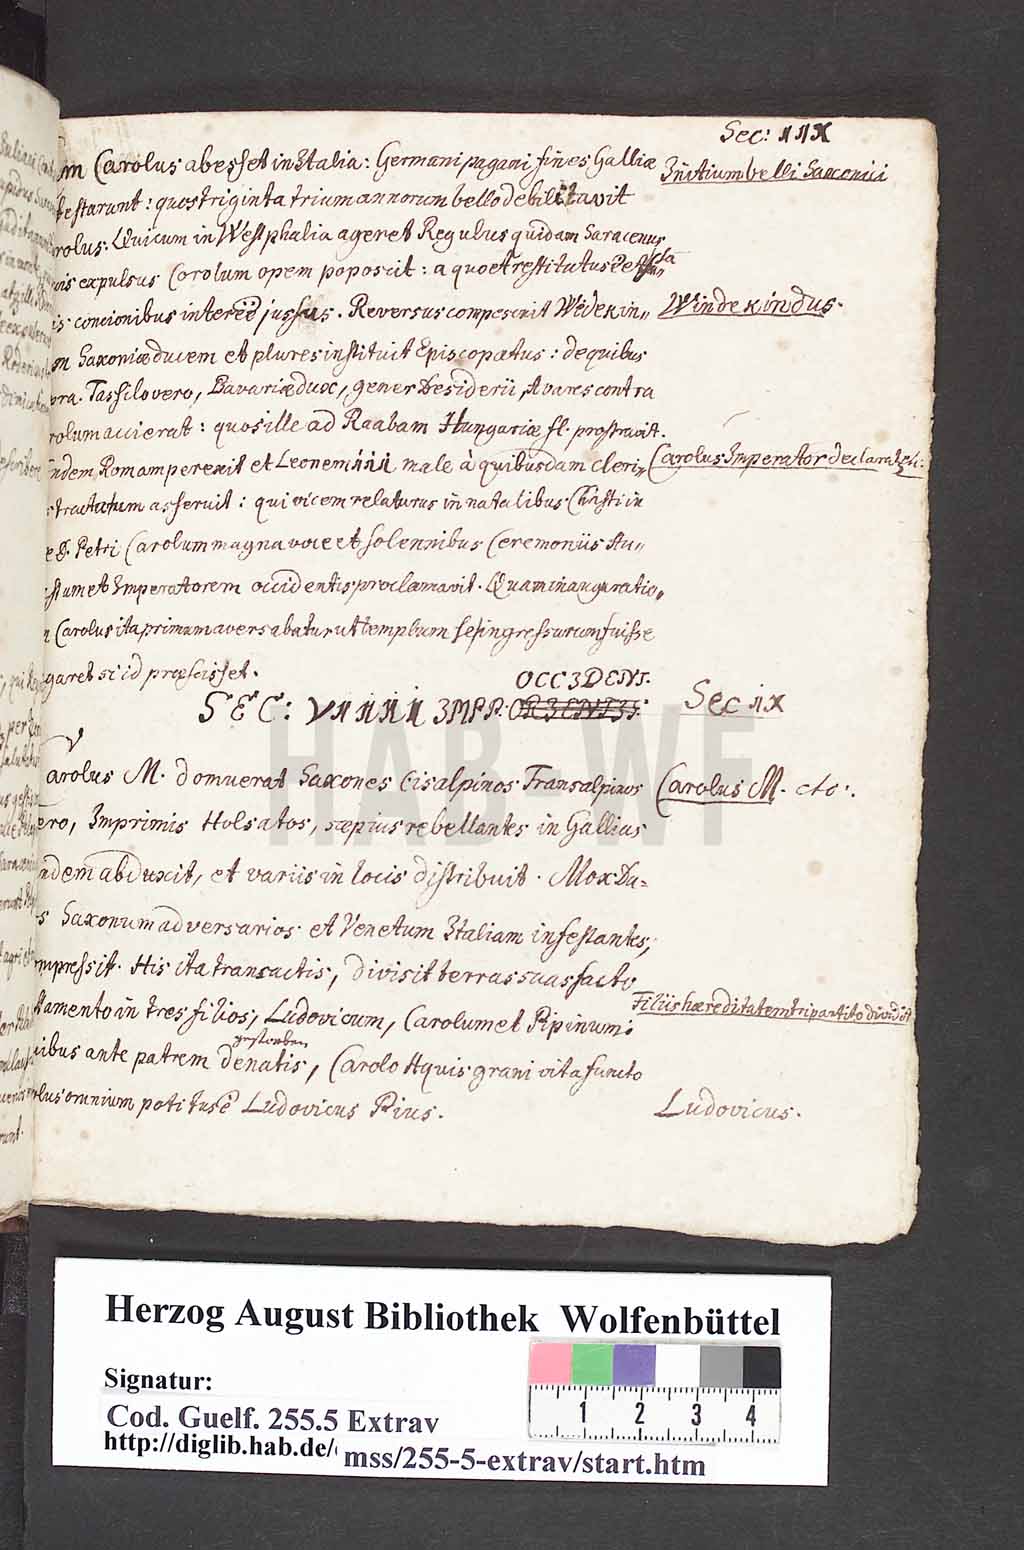 Sec: IIX
um Carolus abesset in Italia: Germani pagani fines Galliæ
Initium belli Saxonici
festarunt: quos triginta trium annorum bello debilitavit
rolus: Qui cum in Westphalia ageret Regulus quidam Saracenus
vis expulsus Carolum opem poposcit: a quo et restitutus
is concionibus jussus. Reversus compescuit Wedekin„
Windekindus.
on Saxoniæ ducem et plures instituit Episcopatus: de quibus
pra. Tassilo vero, Bavariæ dux, gener Desiderii, Avares contra
rolum accierat: quos ille ad Raabam Hungariæ fl. prostravit.
ndem Romam perexit et Leonem III, male à quibusdam cleri„
Carolus Imperator declaratur
tractatum asseruit: qui vicem relaturus in natalibus Christi in
e D. Petri Carolum magna voce et solennibus Ceremoniis Au„
stum et Imperatorem occidentis proclamavit. Quam inauguratio„
n Carolus ita primum aversabatur ut templum se ingressurum fuisse
garet si id præscisset.
OCCIDENT.
SEC: VIIII IMPP. ORIENTIS.
Sec IX
arolus M. domuerat Saxones Cisalpinos Transalpinos
Carolus M. etc.
ero, Imprimis Holsatos, sæpius rebellantes in Gallias
ndem abduxit, et variis in locis distribuit. Mox Da=
s Saxonum adversarios et Venetum Italiam infestantes,
mpressit. His ita transactis, divisit terras suas facto
tamento in tres filios, Ludovicum, Carolum et Pipinum:
Filiis hæreditatem tripartito dividit
gestorben
cibus ante patrem denatis, Carolo Aquisgrani vita functo
olus omnium potitus ē Ludovicus Pius.
Ludovicus.
HAB-WF
Herzog August Bibliothek Wolfenbüttel
Signatur:
Cod. Guelf. 255.5 Extrav
http://diglib.hab.de/
mss/255-5-extrav/start.htm
1 2 3 4